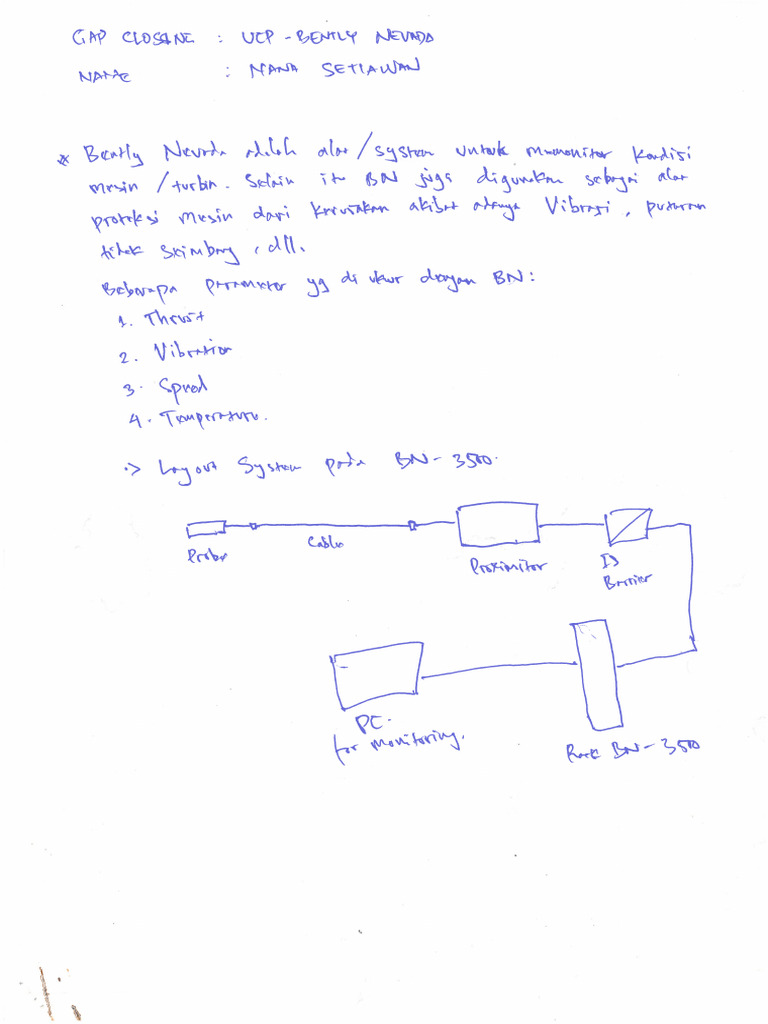 GAP CLOSING : UCP - BENTLY NEVADA
NAME : NANA SETIAWAN
* Bently Nevada adalah alat/system untuk memonitor kondisi
mesin/turbin. Selain itu BN juga digunakan sebagai alat
proteksi mesin dari kerusakan akibat adanya Vibrasi, putaran
tidak seimbang, dll.
Beberapa parameter yg di ukur dengan BN:
1. Thrust
2. Vibration
3. Speed
4. Temperature.
Layout System pada BN-3500.
Probe
Cable
Proximitor
IS
Barrier
PC.
for monitoring.
Rack BN-3500